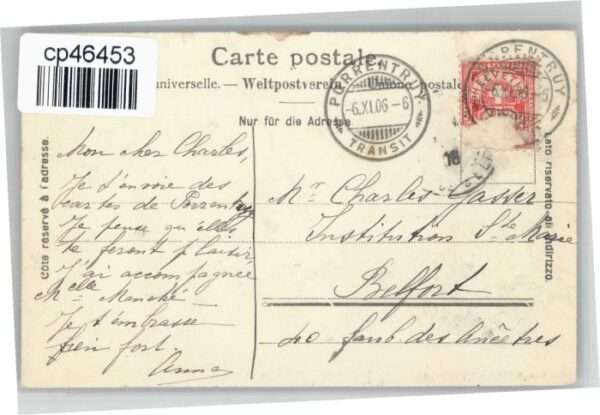 cp46453
Carte postale.
universelle. — Weltpostverein. — Unione postale
PORRENTRUY
-6.XI.06-6
TRANSIT
PORRENTRUY
HELVETIA
Nur für die Adresse.
Côté réservé à l'adresse.
Lato riservato all'indirizzo.
Mon cher Charles,
Je t'envoie des
cartes de Porrentruy
Je pense qu'elles
te feront plaisir,
J'ai accompagnée
Mlle
Je t'embrasse
bien fort.
Anna
Mr Charles Gasser
Institution Ste Marie
Belfort
40 faub. des Ancêtres